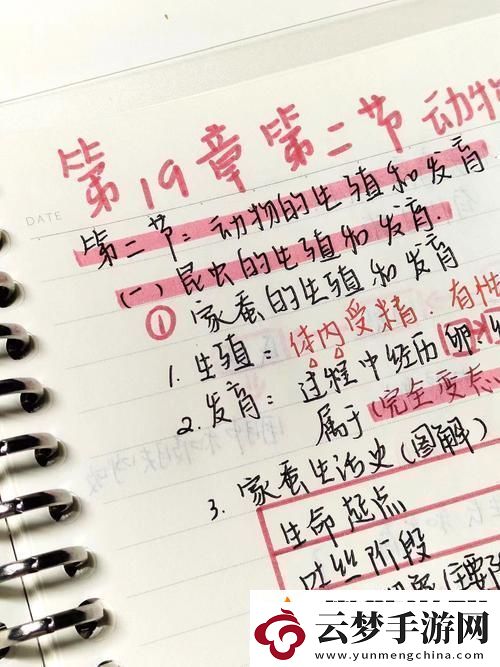 第19章第二节动物
DATE
第二节:动物的生殖和发育.
(一)昆虫的生殖和发育.
① 家蚕的生殖和发育
1. 生殖:体内受精.有性
2. 发育:过程中经历卵、
属于(完全变态
3. 家蚕生活史(图解)
生命起点
吐丝阶段
云梦手游网
www.yunmengchina.com